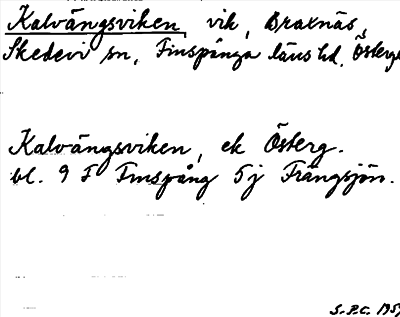 Kalvängsviken, vik, Braxnäs,
Skedevi sn, Finspånga läns hd, Österg
Kalvängsviken, ek Österg.
bl. 9 F Finspång 5j Trångsjön.
S.P.C. 195